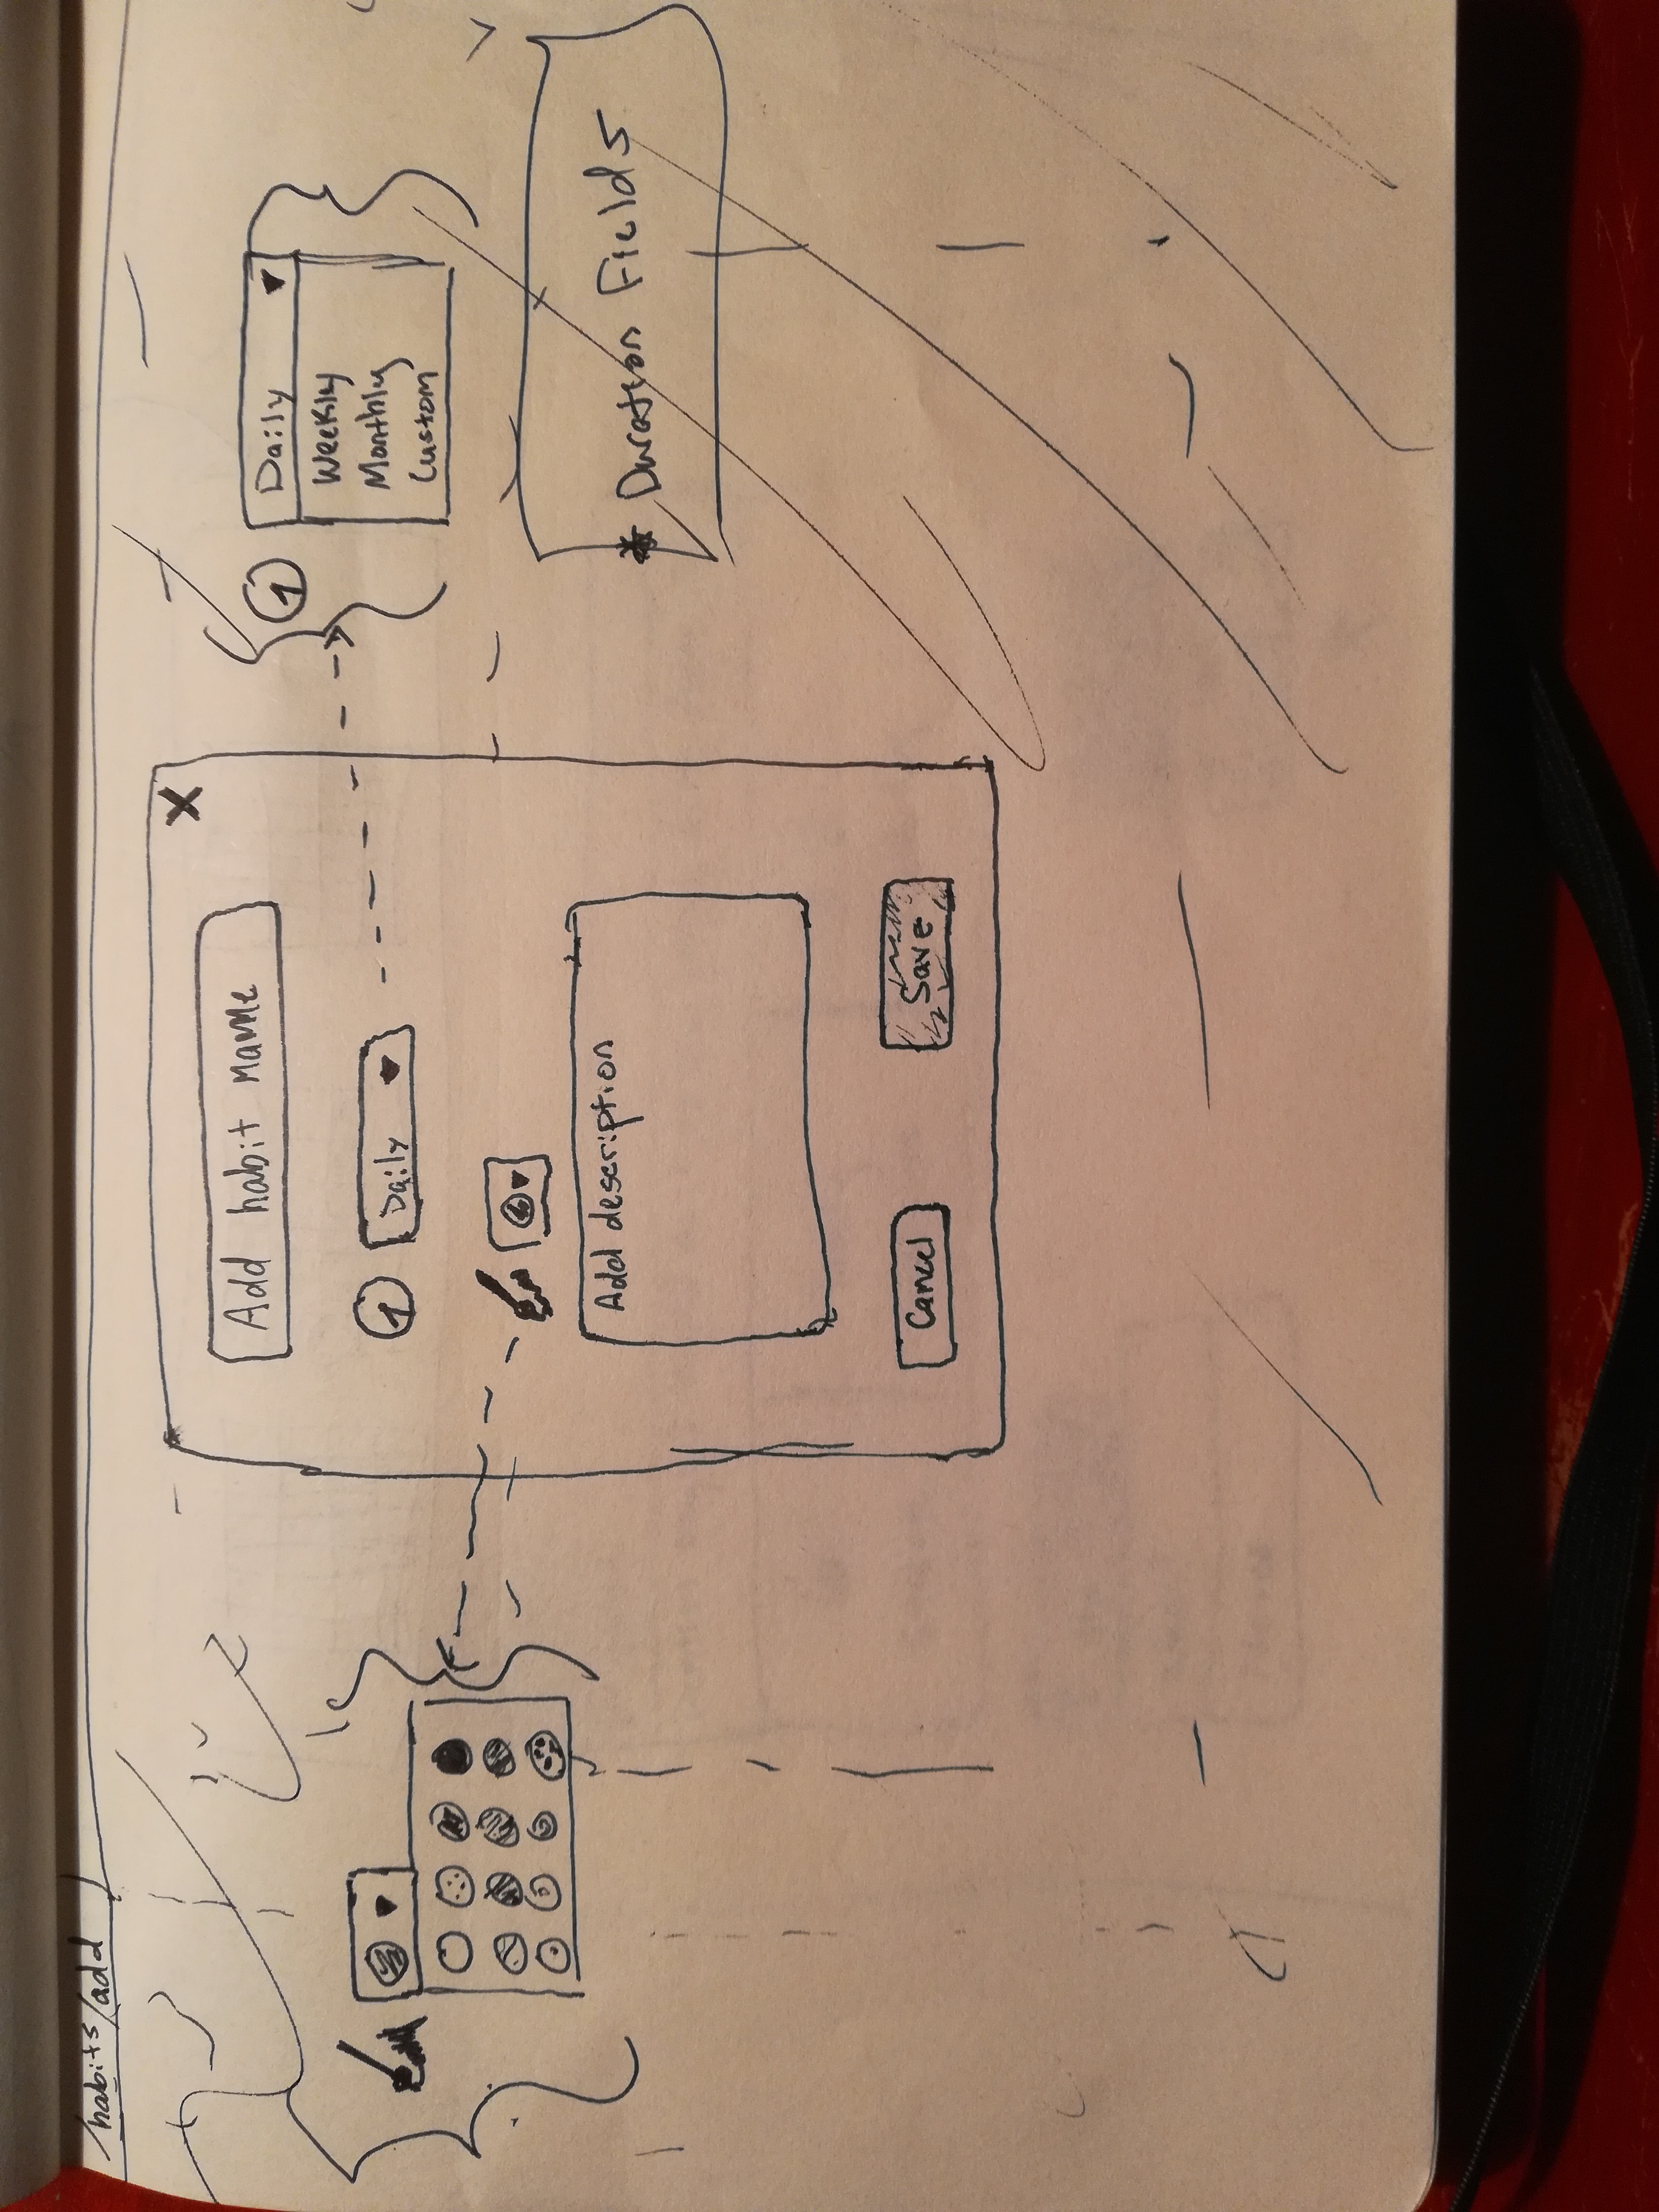 /habits/add
Add habit name
X
Daily ▼
Add description
Cancel
Save
Daily ▼
Weekly
Monthly
Custom
* Duration Fields